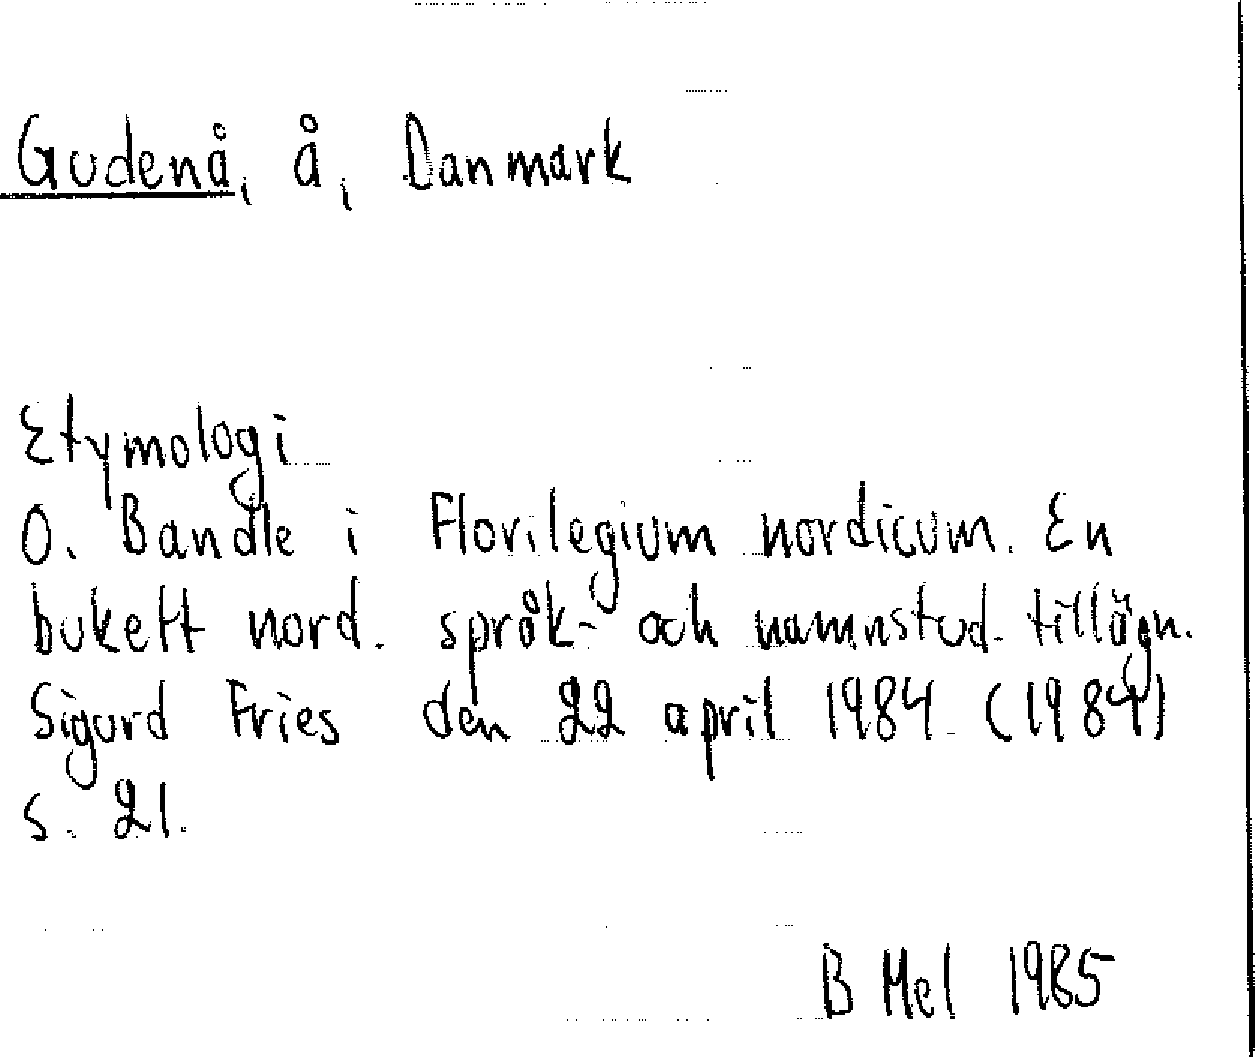 Gudenå, å, Danmark
Etymologi
O. Bandle i Florilegium nordicum. En
bukett nord. språk- och namnstud. tillägn.
Sigurd Fries den 22 april 1984 (1984)
s. 21.
B Mel 1985